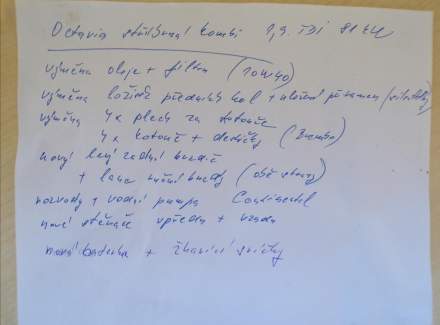 Octavia stříbrná kombi 1,9 TDI 81 kW
výměna oleje + filtru (10W40)
výměna ložisek předních kol + uložení ramen (silentbloky)
výměna 4x plech za kotouče
4x kotouče + destičky (Brembo)
nový levý zadní brzdič
+ lana ruční brzdy (obě strany)
rozvody + vodní pumpa Continental
nové stěrače vpředu + vzadu
nová baterka + žhavící svíčky